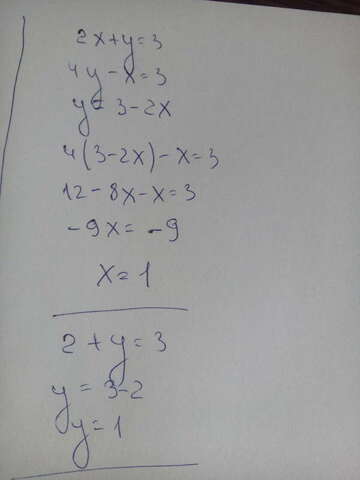 2x+y=3
4y-x=3
y=3-2x
4(3-2x)-x=3
12-8x-x=3
-9x=-9
x=1
2+y=3
y=3-2
y=1